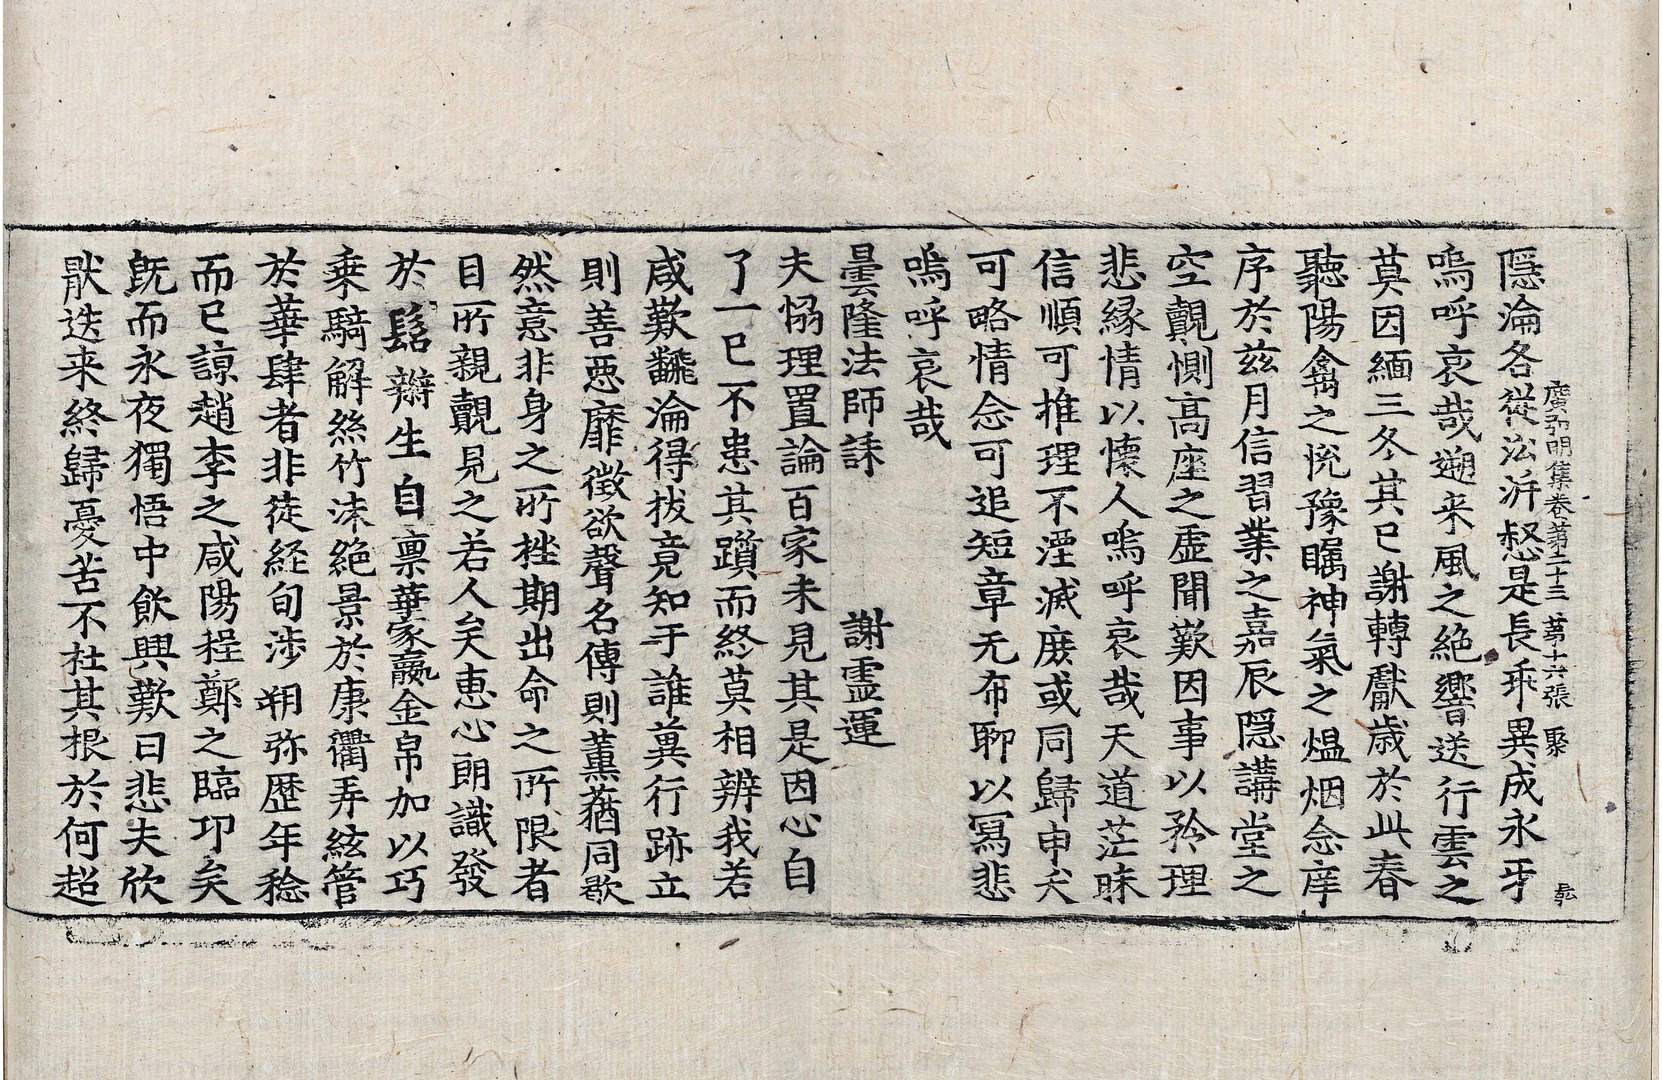 廣弘明集卷第二十三 第十六張 聚
隠淪各從㳂泝愁是長乖異成永牙
嗚呼哀哉遡来風之絶響送行雲之
莫因緬三冬其已謝轉猒歲於此春
聽陽禽之恱豫矚神氣之熅烟念庠
序於兹月信習業之嘉辰隠講堂之
空覿惻高座之虚聞歎因事以矜理
悲縁情以懷人嗚呼哀哉天道茫昧
信順可推理不湮滅庶或同歸申犬
可略情念可追短章无布聊以冩悲
嗚呼哀哉
曇隆法師誄 謝靈運
夫恊理置論百家未見其是因心自
了一已不患其躓而終莫相辨我若
咸歎翻淪得拔竟知于誰兾行跡立
則善惡靡徵欲聲名傳則薫蕕同歇
然意非身之所挫期出命之所限者
目所親覿見之若人矣恵心朗識發
於髫辮生自稟華家嬴金帛加以巧
乗騎解絲竹沫絶景於康衢弄絃管
於華肆者非徒経旬涉朔弥歷年稔
而已諒趙李之咸陽程鄭之臨卭矣
旣而永夜獨悟中飲興歎曰悲夫欣
猒迭来終歸憂苦不杜其根於何超